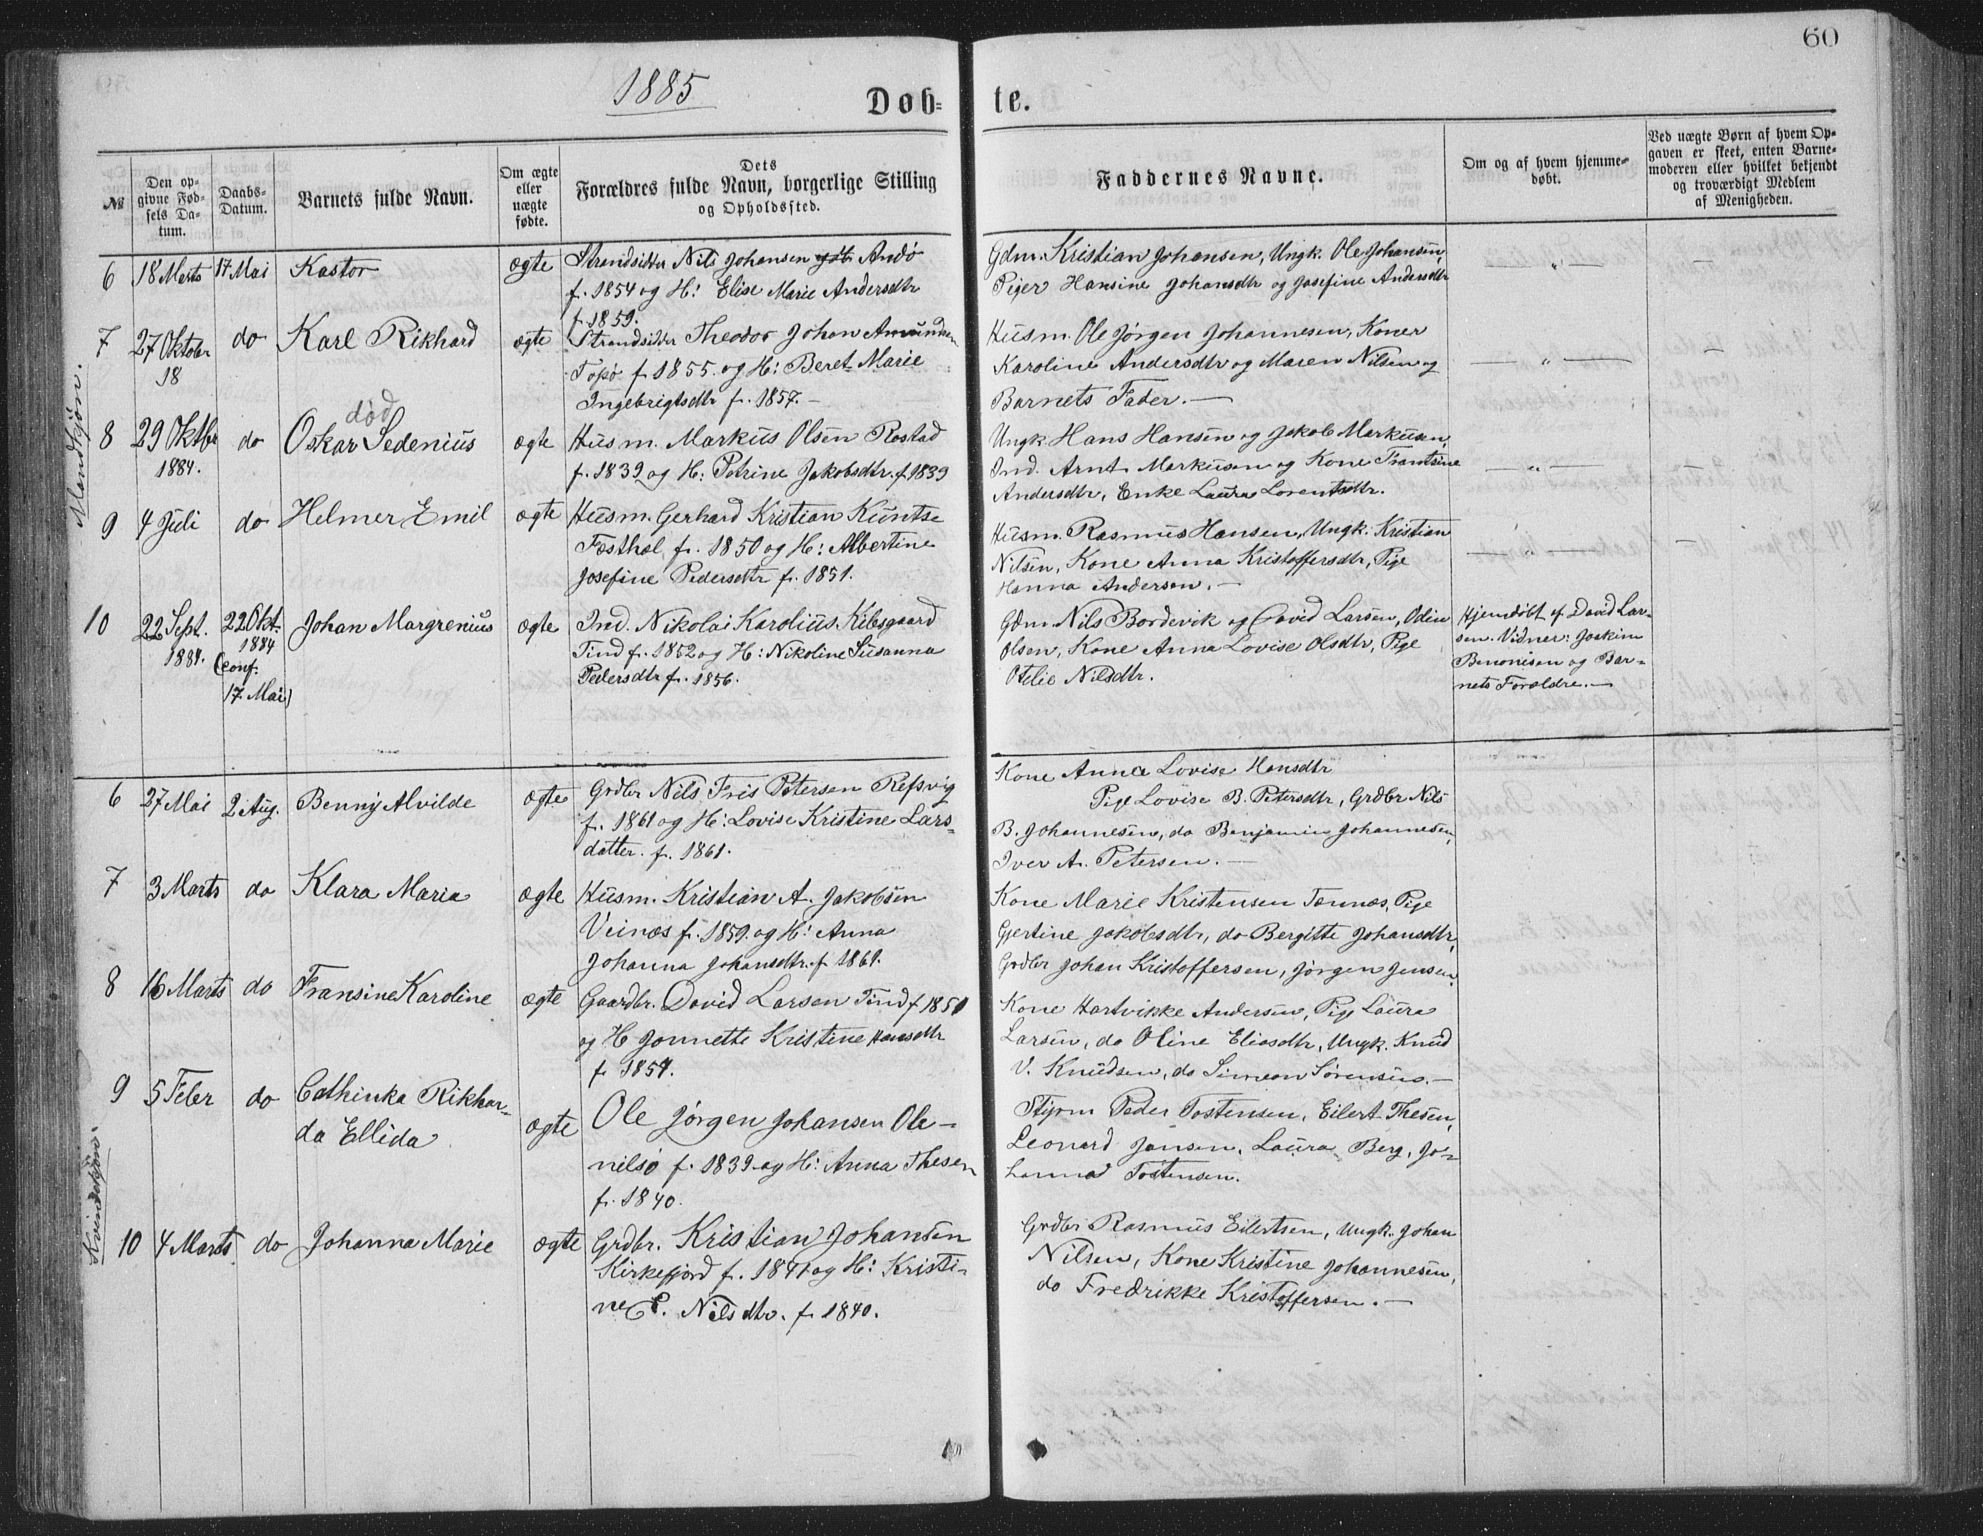 60
1885
Døb-
te.
№
Den op-
givne Fød-
sels Da-
tum.
Daabs-
Datum.
Barnets fulde Navn.
Om ægte
eller
uægte
fødte.
Dets
Forældres fulde Navn, borgerlige Stilling
og Opholdssted.
Faddernes Navne.
Om og af hvem hjemme-
døbt.
Ved uægte Børn af hvem Op-
gaven er skeet, enten Barne-
moderen eller hvilket bekjendt
og troværdigt Medlem
af Menigheden.
Mandkjøn.
6 18 Marts 17 Mai Kastor ægte Strandsidder Nils Johansen Andø
f. 1854 og H: Elise Marie Andersdtr
f. 1859.
Gdm. Kristian Johansen, Ungk. Ole Johansen,
Piger Hansine Johansdtr og Josefine Andersdtr
— " — —
7 27 Oktober
18
do Karl Rikhard ægte Strandsidder Theodor Johan Amundsen
Topø f. 1855. og H: Beret Marie
Ingebrigtsdtr f. 1857. —
Husm. Ole Jørgen Johannesen, Koner
Karoline Andersdtr og Maren Nilsen og
Barnets Fader. —
— " — —
8 29 Oktbr
1884.
do død
Oskar Sedenius ægte Husm. Markus Olsen Rostad
f. 1839 og H: Petrine Jakobsdtr. f 1839
Ungk. Hans Hansen og Jakob Markusen,
Ind. Arnt Markusen og Kone Frantsine
Andersdtr, Enke Laura Lorentsdtr.
— " — —
9 4 Juli do Helmer Emil ægte Husm. Gerhard Kristian Kuntse
Festhæl f. 1850 og H: Albertine
Josefine Pedersdtr f. 1851.
Husm. Rasmus Hansen, Ungk. Kristian
Nilsen, Kone Anna Kristoffersdtr, Pige
Hanna Andersen. —
— " — —
10 22 Sept.
1884.
22 Okt.
1884
(Conf.
17 Mai)
Johan Margrenius ægte Ind. Nikolai Karolius Kibsgaard
Tind f. 1852 og H: Nikoline Susanna
Pedersdtr f. 1856.
Gdm. Nils Bordevik og David Larsen, Odin
Olsen, Kone Anna Lovise Olsdtr, Pige
Otelie Nilsdtr.
Hjemdøbt af David Lar-
sen. Vidner: Joakim
Benonisen og Bar-
nets Forældre. —
Kvindekjøn.
6 27 Mai 2 Aug. Benny Alvilde ægte Grdbr Nils Fris Petersen Refsvig
f. 1861 og H: Lovise Kristine Lars-
datter. f. 1861.
Kone Anna Lovise Hansdtr
Pige Lovise B. Petersdtr, Grdbr Nils
B. Johannesen, do Benjamin Johannesen,
Iver A. Petersen. —
7 3 Marts do Klara Maria ægte Husm. Kristian A. Jakobsen
Veinæs f. 1859. og H: Anna
Johanna Johansdtr. f 1861.
Kone Marie Kristensen Tennæs, Pige
Gjertine Jakobsdtr, do Bergitte Johansdtr,
Grdbr Johan Kristoffersen, Jørgen Jensen.
8 16 Marts do Fransine Karoline ægte Gaardbr. David Larsen Tind f 1850
og H Jonnette Kristine Hansdtr
f 1854.
Kone Hartvikke Andersen, Pige Laura
Larsen, do Oline Eliasdtr, Ungk. Knud
V. Knudsen, do Simeon Sørensen. —
9 5 Feber do Cathinka Rikhar-
da Ellida ægte Ole Jørgen Johansen Ole-
nilsø f. 1839 og H: Anna Thesen
f. 1840.
Styrm Peder Tostensen, Eilert Thesen,
Leonard Jensen, Laura Berg, Jo-
hanna Tostensen.
10 4 Marts do Johanna Marie ægte Grdbr. Kristian Johansen
Kirkefjord f. 1841 og H: Kristi-
ne E. Nilsdtr. f 1840.
Grdbr Rasmus Eilertsen, Ungk. Johan
Nilsen, Kone Kristine Johannesen,
do Fredrikke Kristoffersen. —